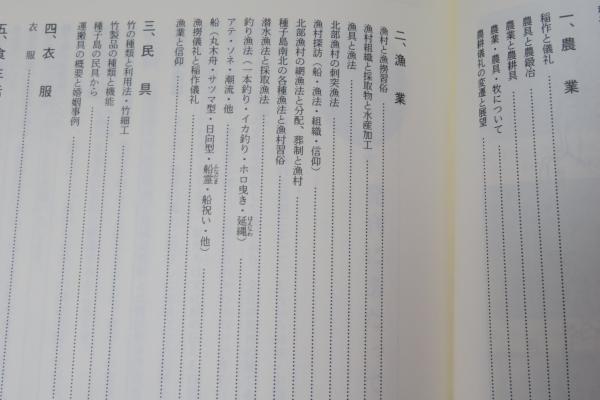 一、農業
稲作と儀礼
農具と農鍛冶
農業と農耕具
農業・農具・牧について
農耕儀礼の変遷と展望
二、漁業
漁村と漁撈習俗
漁村組織と採取物と水産加工
漁具と漁法
北部漁村の刺突漁法
漁村探訪（船・漁法・組織・信仰）
北部漁村の網漁法と分配、葬制と漁村
種子島南北の各種漁法と漁村習俗
潜水漁法と採取漁法
釣り漁法（一本釣り・イカ釣り・ホロ曳き・延縄）
アテ・ソネ・潮流・他
船（丸木舟・サツマ型・日向型・船霊・船祝い・他）
漁撈儀礼と稲作儀礼
漁業と信仰
三、民具
竹の種類と利用法・竹細工
竹製品の種類と機能
種子島の民具から
運搬具の概要と婚姻事例
四、衣服
衣服